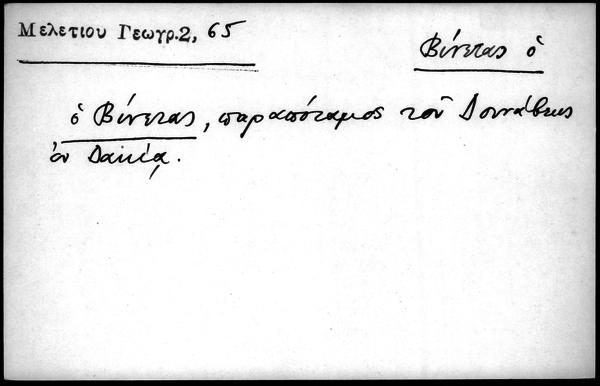 Μελετιου Γεωγρ.2, 65
Βένετας ὁ
ὁ Βένετας, παραπόταμος τοῦ Δουνάβεως
ἐν Δακίᾳ.